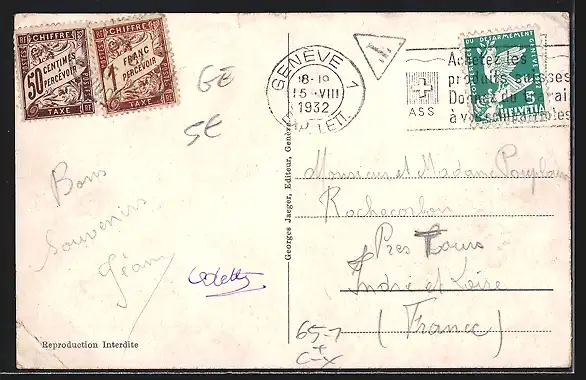 CHIFFRE
50
CENTIMES
A PERCEVOIR
TAXE
CHIFFRE
1
FRANC
A PERCEVOIR
TAXE
GENÈVE 1
18-19
15·VIII
1932
T
ASS
Achetez les
produits suisses
Donnez du travail
à vos compatriotes
DU DÉSARMEMENT
GENÈVE
5
HELVETIA
GE
5E
Bons
Souvenirs
Odette
Monsieur et Madame
Rochecorbon
Près Tours
Indre et Loire
(France)
65-1
+
C-X
Georges Jaeger, Editeur, Genève
Reproduction Interdite